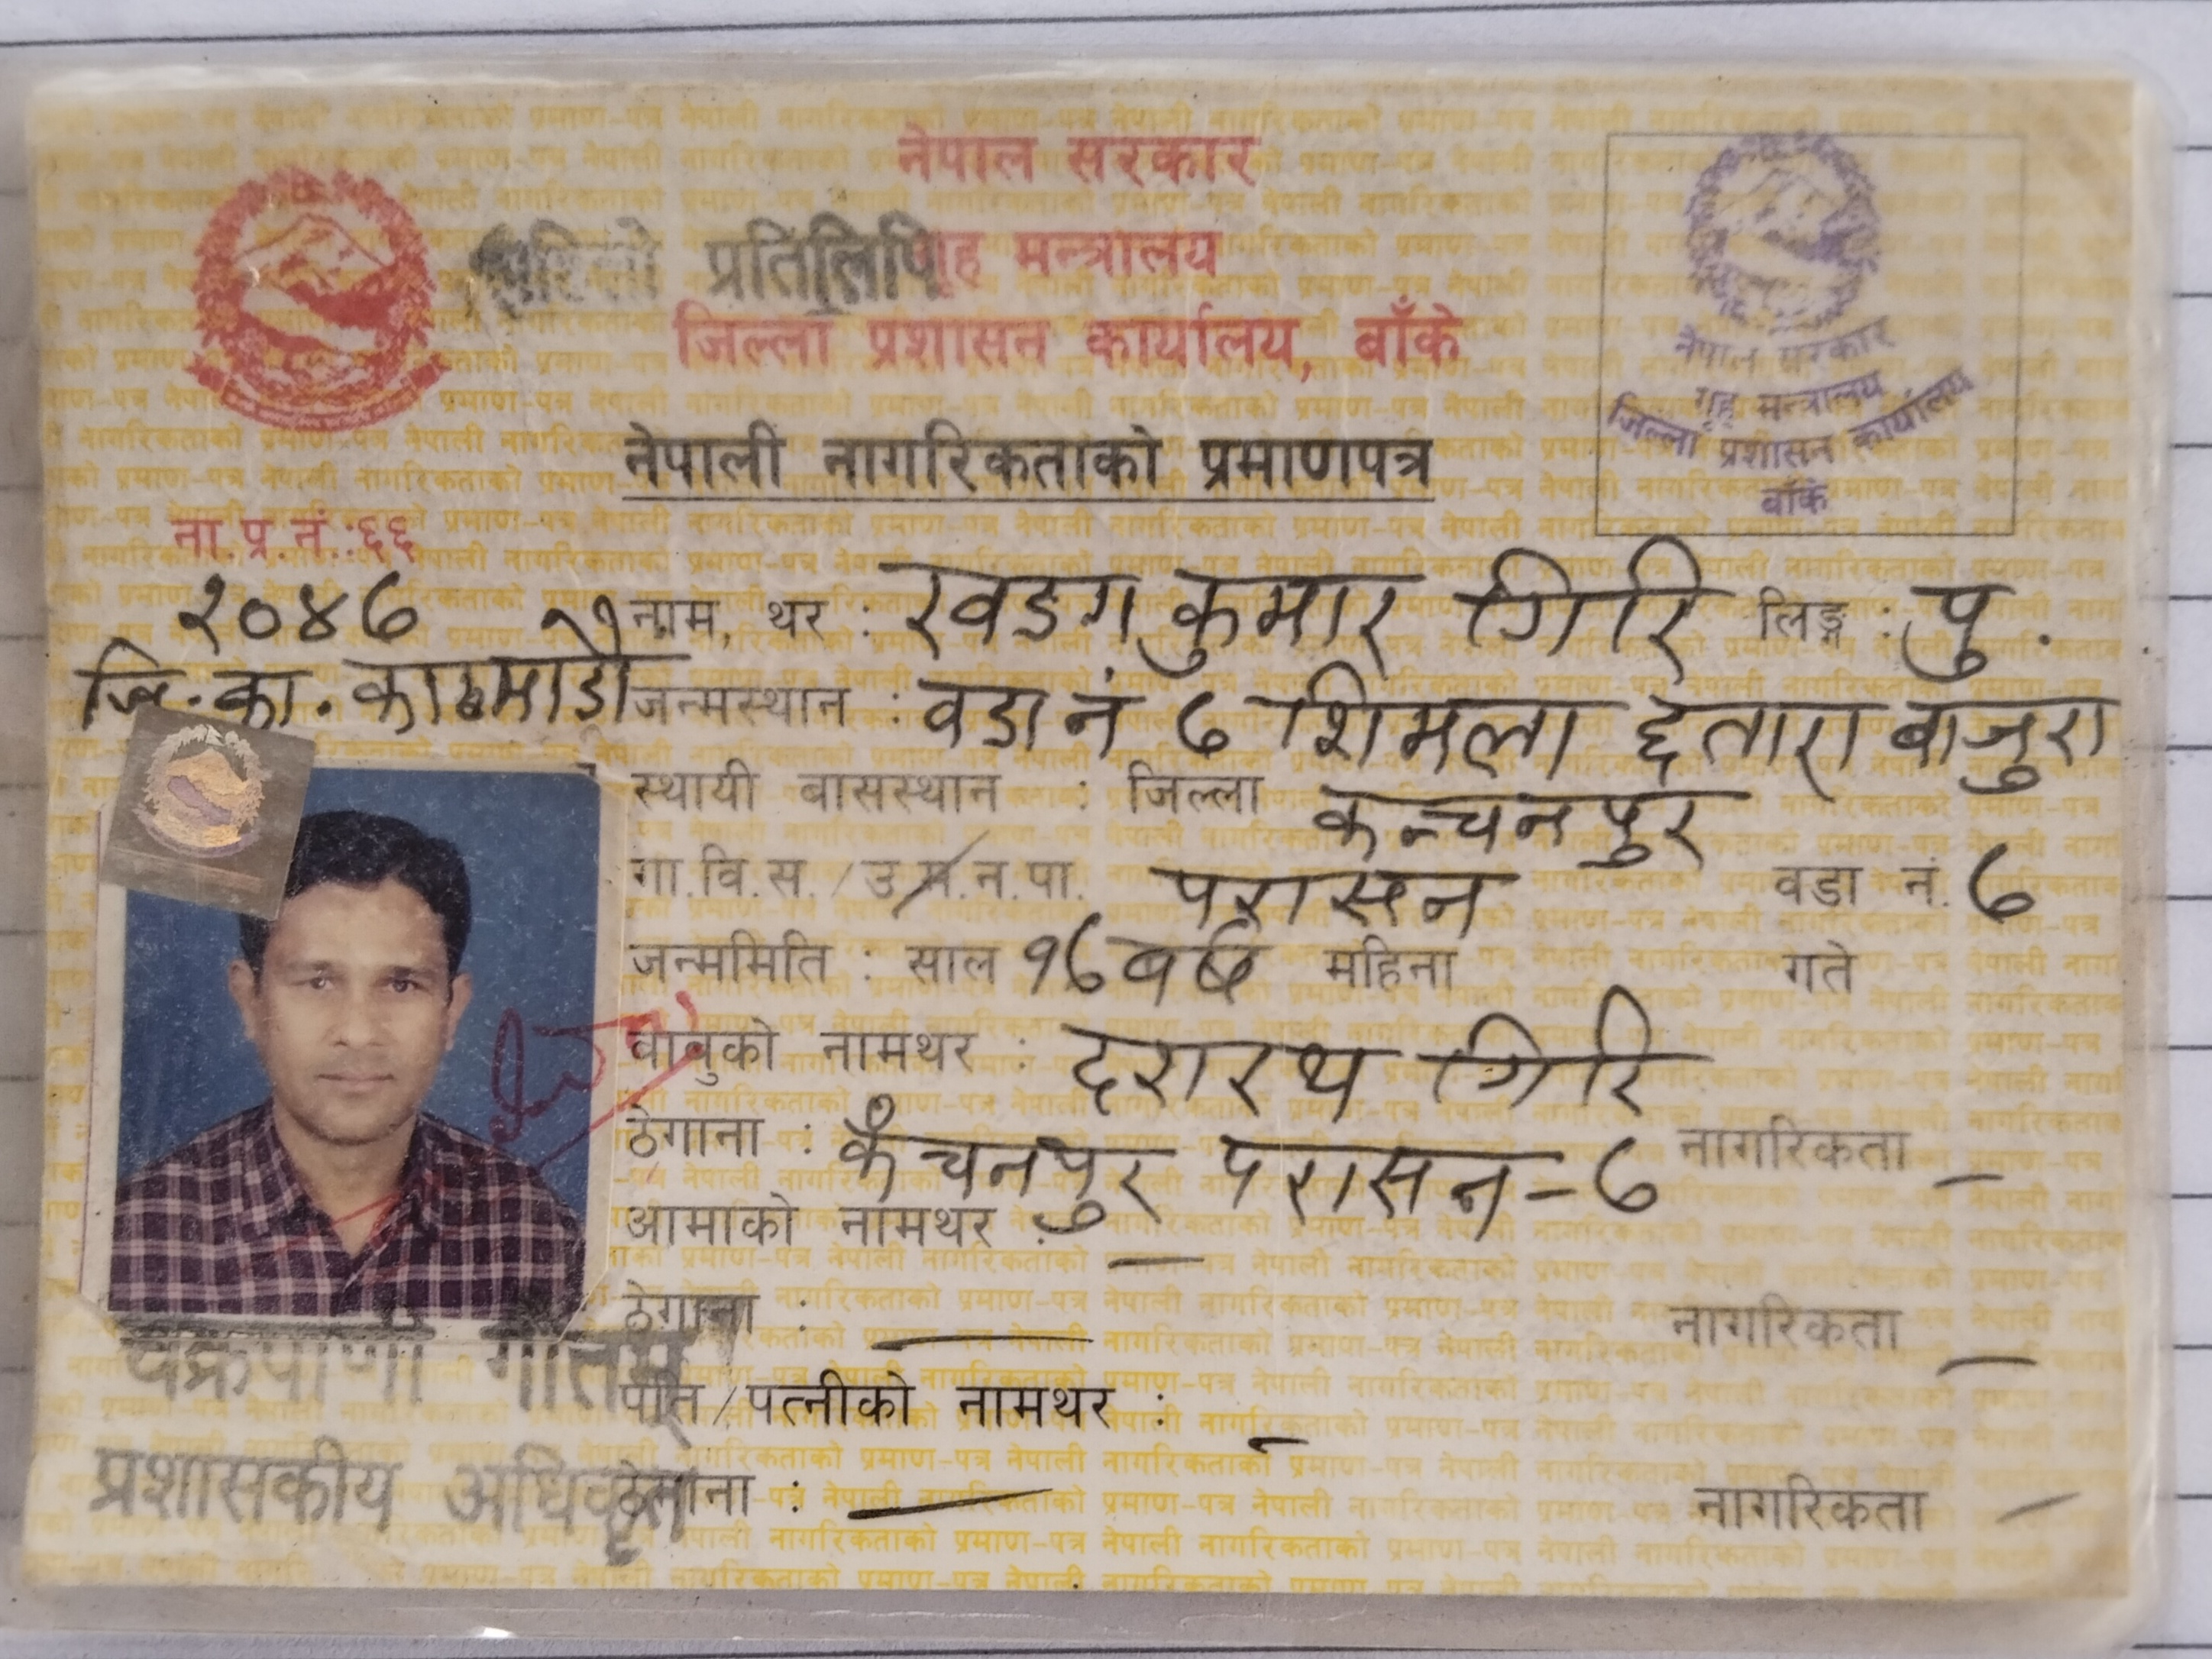 नेपाल सरकार
प्रतिलिपि
गृह मन्त्रालय
जिल्ला प्रशासन कार्यालय, बाँके
नेपाली नागरिकताको प्रमाणपत्र
नेपाल सरकार
गृह मन्त्रालय
जिल्ला प्रशासन कार्यालय
बाँके
ना.प्र.नं.:६६
२०४७ नाम, थर : खड्ग कुमार गिरि लिङ्ग : पु.
जि.का. काठमाडौं जन्मस्थान : वडा नं ७ शिमला छतारा बाजुरा
स्थायी बासस्थान : जिल्ला कन्चनपुर
गा.वि.स./उ.म.न.पा. परासन वडा नं. ७
जन्ममिति : साल १७ वर्ष महिना गते
बाबुको नामथर : दशरथ गिरि
ठेगाना : कँचनपुर परासन-७ नागरिकता –
आमाको नामथर : —
ठेगाना : — नागरिकता —
पति/पत्नीको नामथर : -
ठेगाना : — नागरिकता –
चक्रपाणी गौतम
प्रशासकीय अधिकृत